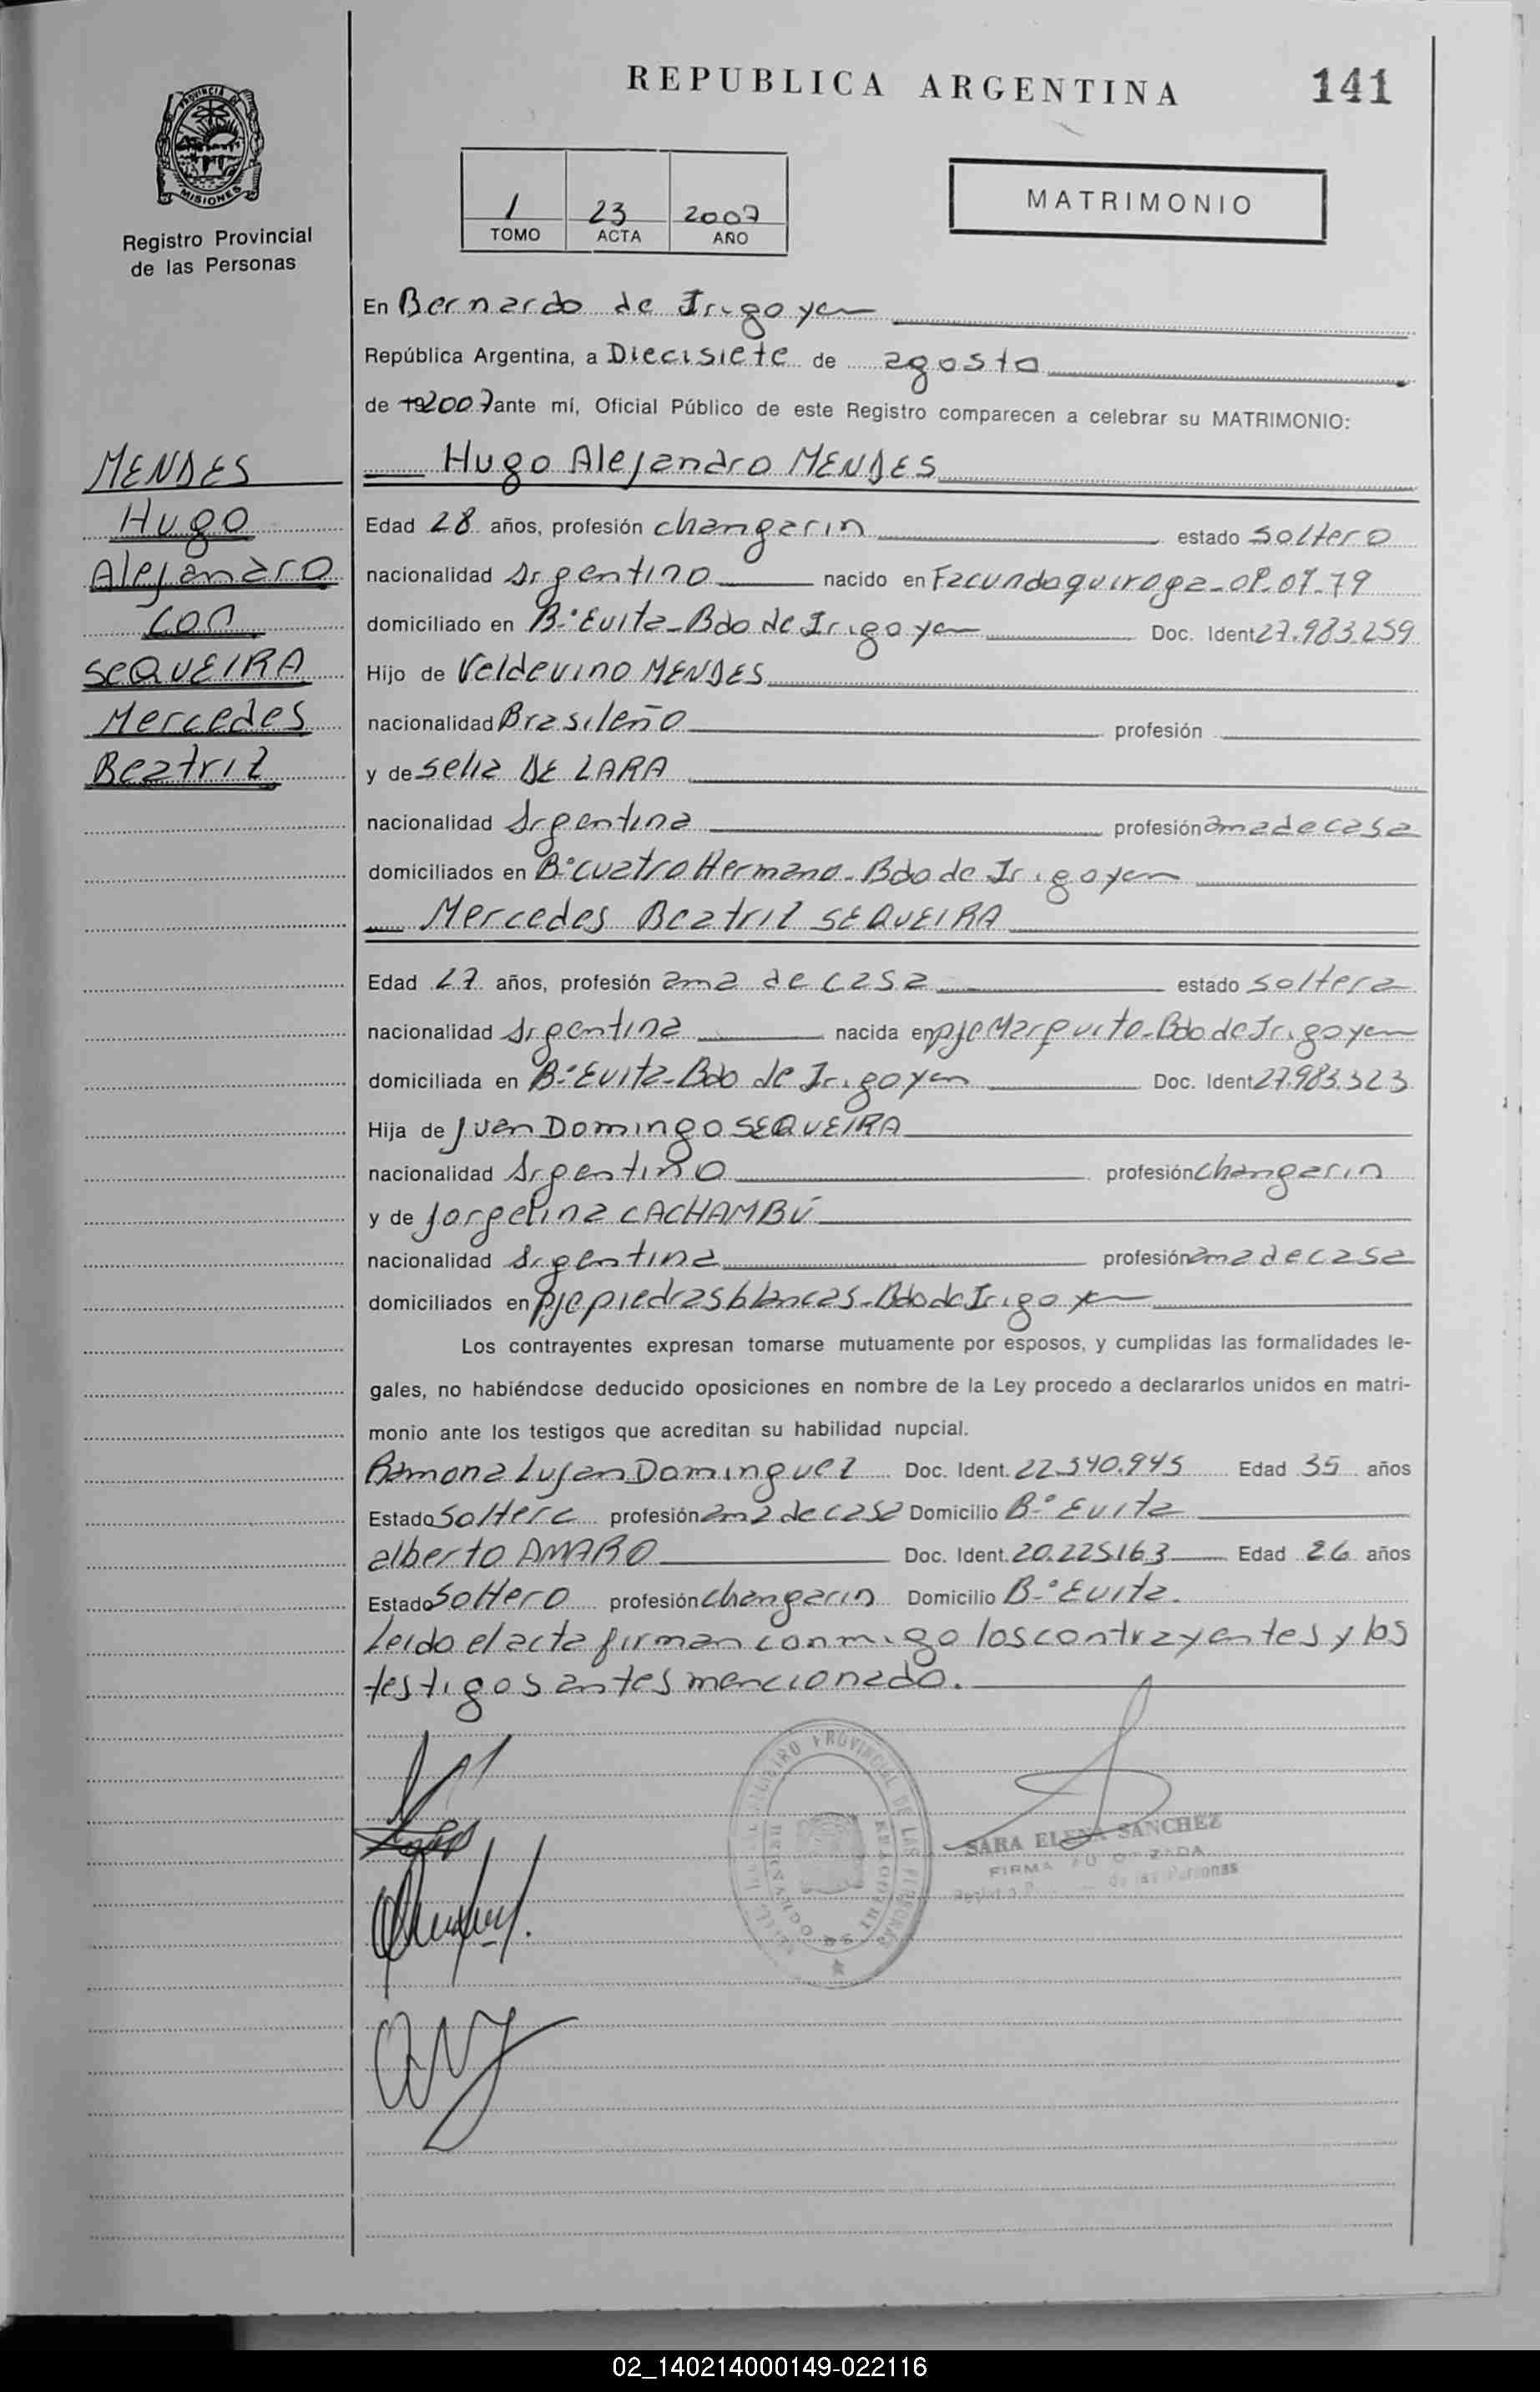 REPUBLICA ARGENTINA
141
PROVINCIA DE
MISIONES
Registro Provincial
de las Personas
1 23 2007
TOMO ACTA AÑO
MATRIMONIO
En Bernardo de Irigoyen
República Argentina, a Diecisiete de agosto
de 192007 ante mí, Oficial Público de este Registro comparecen a celebrar su MATRIMONIO:
MENDES
Hugo
Alejandro
con
SeQUEIRA
Mercedes
Beatriz
Hugo Alejandro MENDES
Edad 28 años, profesión changarin estado soltero
nacionalidad Argentino nacido en Facundo quiroga - 08-07-79
domiciliado en B-° Evita - Bdo de Irigoyen Doc. Ident 27.983.259
Hijo de Veldevino MENDES
nacionalidad Brasileño profesión
y de Selia DE LARA
nacionalidad Argentina profesión ama de casa
domiciliados en B° cuatro Hermano - Bdo de Irigoyen
Mercedes Beatriz SEQUEIRA
Edad 27 años, profesión ama de casa estado soltera
nacionalidad Argentina nacida en pje Marquito - Bdo de Irigoyen
domiciliada en B-° Evita - Bdo de Irigoyen Doc. Ident 27.983.323
Hija de Juan Domingo SEQUEIRA
nacionalidad Argentino profesión changarin
y de Jorgelina CACHAMBÚ
nacionalidad Argentina profesión ama de casa
domiciliados en pje piedras blancas - Bdo de Irigoyen
Los contrayentes expresan tomarse mutuamente por esposos, y cumplidas las formalidades le-
gales, no habiéndose deducido oposiciones en nombre de la Ley procedo a declararlos unidos en matri-
monio ante los testigos que acreditan su habilidad nupcial.
Ramona Lujan Dominguez Doc. Ident. 22.540.945 Edad 35 años
Estado Soltera profesión ama de casa Domicilio B-° Evita
alberto AMARO Doc. Ident. 20.225.163 Edad 26 años
Estado Soltero profesión changarin Domicilio B-° Evita.
Leido el acta firman conmigo los contrayentes y los
testigos antes mencionado.
REGISTRO PROVINCIAL DE LAS PERSONAS
SARA ELENA SANCHEZ
FIRMA AUTORIZADA
de las Personas
02_140214000149-022116